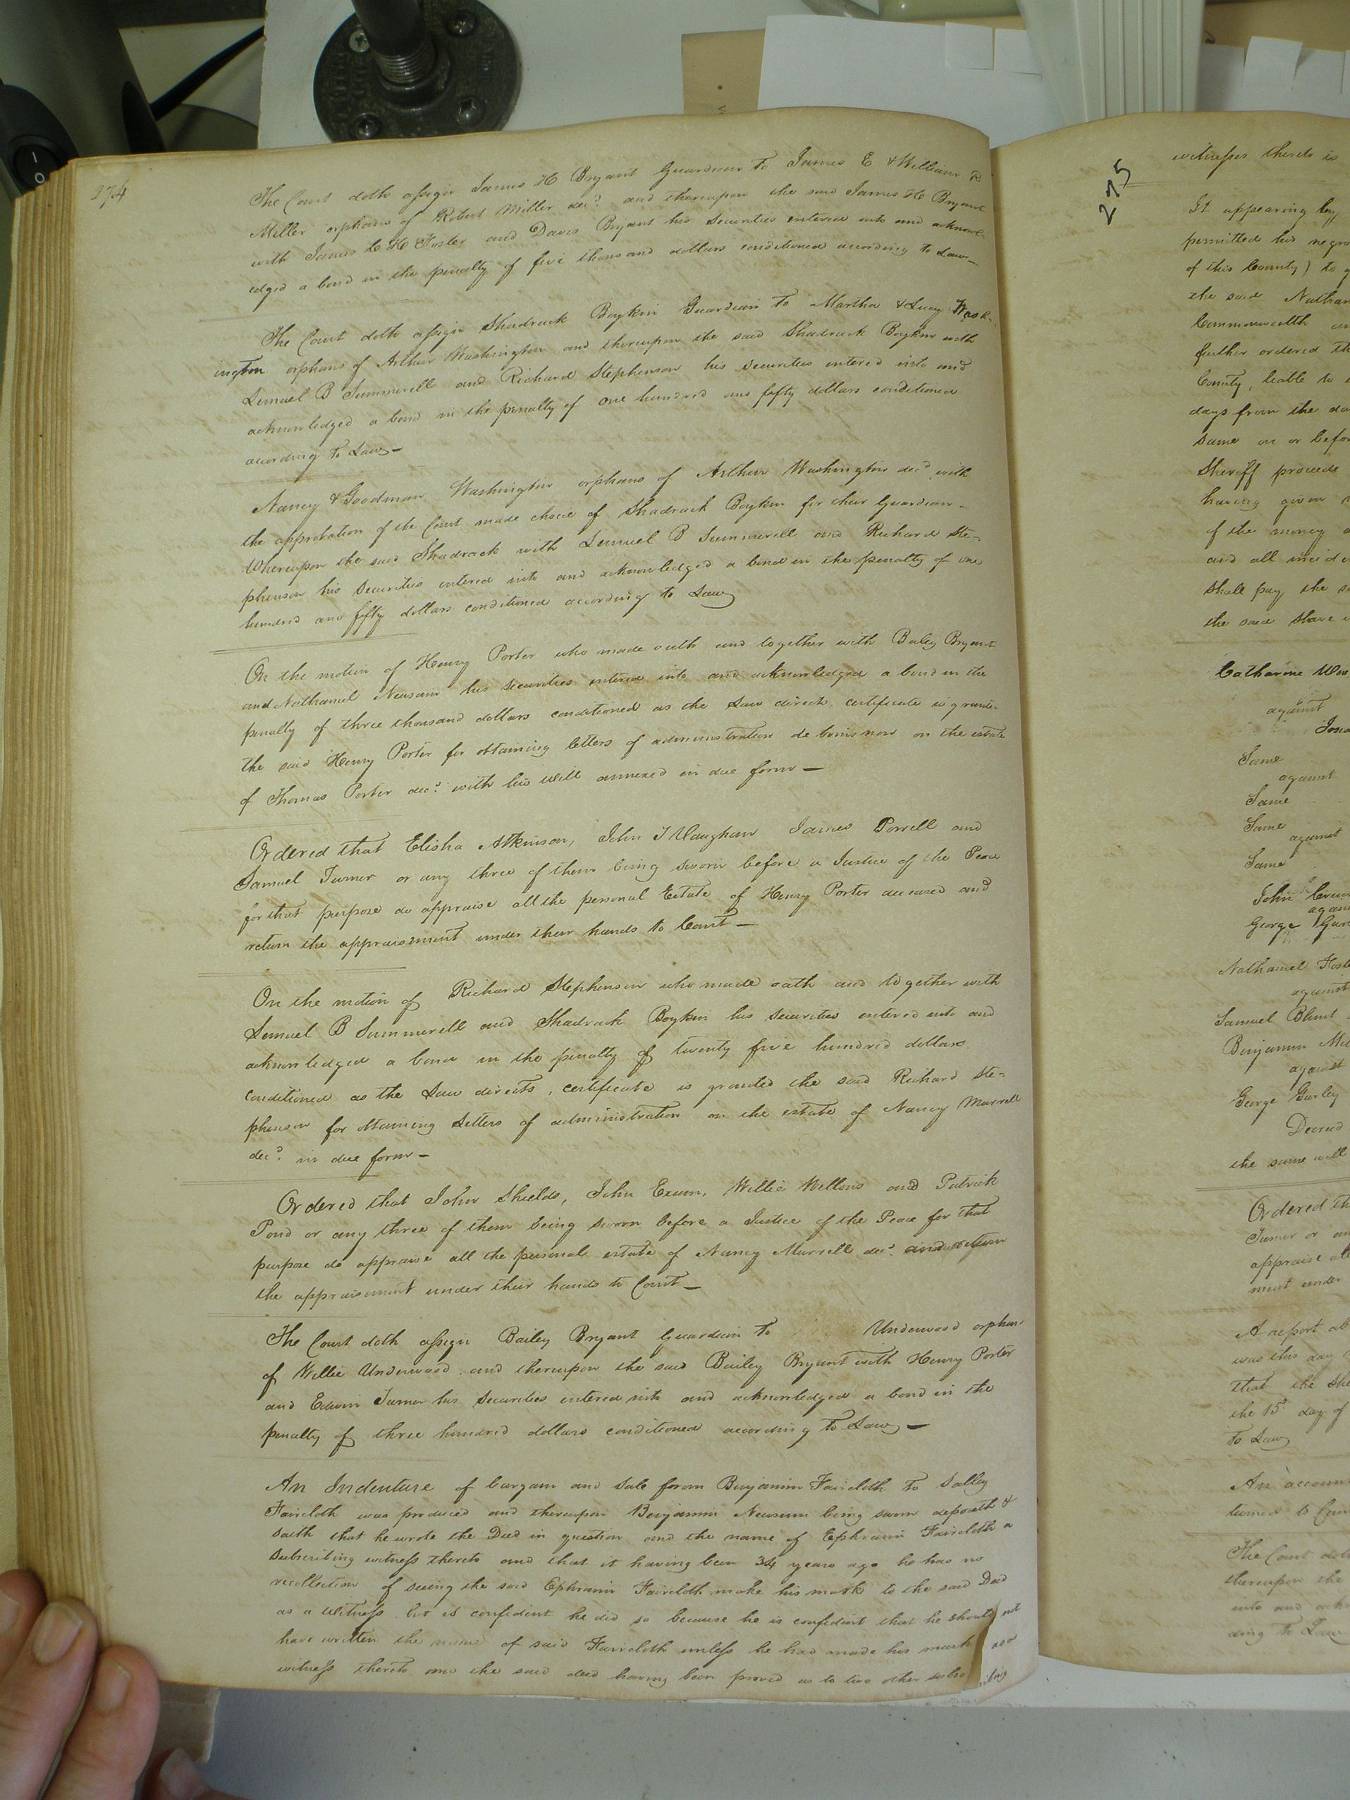 274
The Court doth assign James H Bryant Guardian to James E & William R
Miller orphans of Robert Miller decd. and thereupon the said James H Bryant
with James L H Foster and Davis Bryant his securities entered into and acknowl-
edged a bond in the penalty of five thousand dollars conditioned according to Law—
The Court doth assign Shadrack Boykin Guardian to Martha & Lucy Wash-
ington orphans of Arthur Washington and thereupon the said Shadrack Boykin with
Lemuel B Summerell and Richard Stephenson his securities entered into and
acknowledged a bond in the penalty of one hundred and fifty dollars conditioned
according to Law—
Nancy & Goodman Washington orphans of Arthur Washington decd. with
the approbation of the Court made choice of Shadrack Boykin for their Guardian-
Whereupon the said Shadrack with Lemuel B Summerell and Richard Ste-
phenson his securities entered into and acknowledged a bond in the penalty of one
hundred and fifty dollars conditioned according to Law
On the motion of Henry Porter who made oath and together with Baley Bryant
and Nathaniel Newsom his securities entered into and acknowledged a bond in the
penalty of three thousand dollars conditioned as the Law directs certificate is granted
the said Henry Porter for obtaining letters of administration de bonis non on the estate
of Thomas Porter decd. with his will annexed in due form—
Ordered that Elisha Atkinson, John T Vaughan James Powell and
Samuel Turner or any three of them being sworn before a Justice of the Peace
for that purpose do appraise all the personal Estate of Henry Porter deceased and
return the appraisement under their hands to Court—
On the motion of Richard Stephenson who made oath and together with
Lemuel B Summerell and Shadrack Boykin his securities entered into and
acknowledged a bond in the penalty of twenty five hundred dollars
conditioned as the Law directs, certificate is granted the said Richard Ste-
phenson for obtaining Letters of administration on the estate of Nancy Murrell
decd. in due form—
Ordered that John Shields, John Exum, Willie Wellons and Patrick
Pond or any three of them being sworn before a Justice of the Peace for that
purpose do appraise all the personal estate of Nancy Murrell decd. and return
the appraisement under their hands to Court—
The Court doth assign Bailey Bryant Guardian to Underwood orphan
of Willie Underwood and thereupon the said Bailey Bryant with Henry Porter
and Edwin Turner his securities entered into and acknowledged a bond in the
penalty of three hundred dollars conditioned according to Law—
An Indenture of bargain and sale from Benjamin Faircloth to Salley
Faircloth was produced and thereupon Benjamin Newsum being sworn deposeth &
saith that he wrote the Deed in question and the name of Ephraim Faircloth a
subscribing witness thereto and that it having been 34 years ago he has no
recollection of seeing the said Ephraim Faircloth make his mark to the said Deed
as a witness but is confident he did so because he is confident that he should not
have written the name of said Faircloth unless he had made his mark as a
witness thereto and the said deed having been proved as to two other subscribing
275
witnesses thereto is
It appearing by
permitted his negro
of this County) to
the said Nathan
Commonwealth
further ordered th
County, liable to
days from the da
same on or befor
Sheriff proceed
having given
of the money
and all incid
shall pay the s
the said slave
Catharine
against
Same
against
Same
Same
against
Same
John
against
George
Nathaniel
against
Samuel Blunt
Benjamin
against
George Gurley
Decreed
the same will
Ordered th
Turner or an
appraise all
ment under
A report
was this day
that the She
the 15th day of
to Law
An account
turned to Court
The Court doth
thereupon the
into and ack
ding to Law